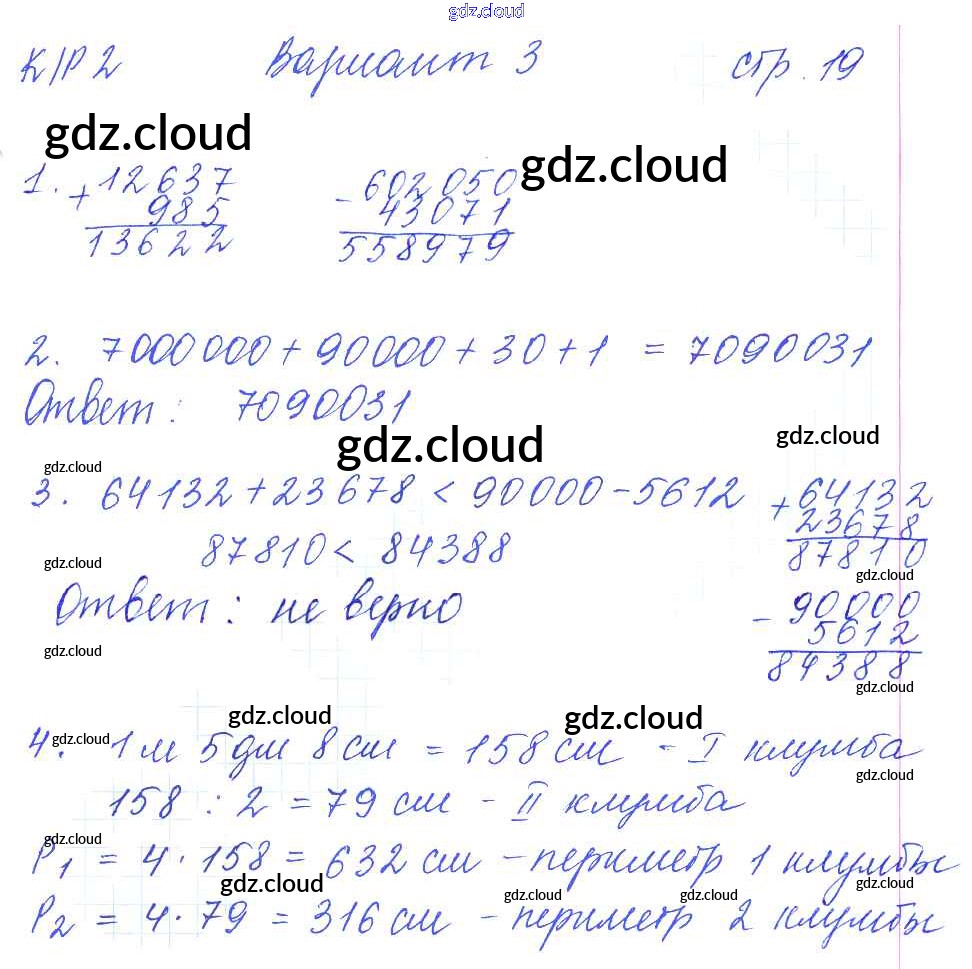 gdz.cloud
К/Р 2 Вариант 3 стр. 19
gdz.cloud
gdz.cloud
1. + 12637 - 602050
985 43071
13622 558979
2. 7000000 + 90000 + 30 + 1 = 7090031
Ответ: 7090031
gdz.cloud gdz.cloud
gdz.cloud
3. 64132 + 23678 < 90000 - 5612 + 64132
23678
87810 < 84388 87810
gdz.cloud gdz.cloud
Ответ: не верно - 90000
5612
gdz.cloud 84388
gdz.cloud
gdz.cloud gdz.cloud
4. gdz.cloud 1 м 5 дм 8 см = 158 см - I клумба
gdz.cloud
158 : 2 = 79 см - II клумба
gdz.cloud
P1 = 4 · 158 = 632 см - периметр 1 клумбы
gdz.cloud gdz.cloud gdz.cloud gdz.cloud
P2 = 4 · 79 = 316 см - периметр 2 клумбы